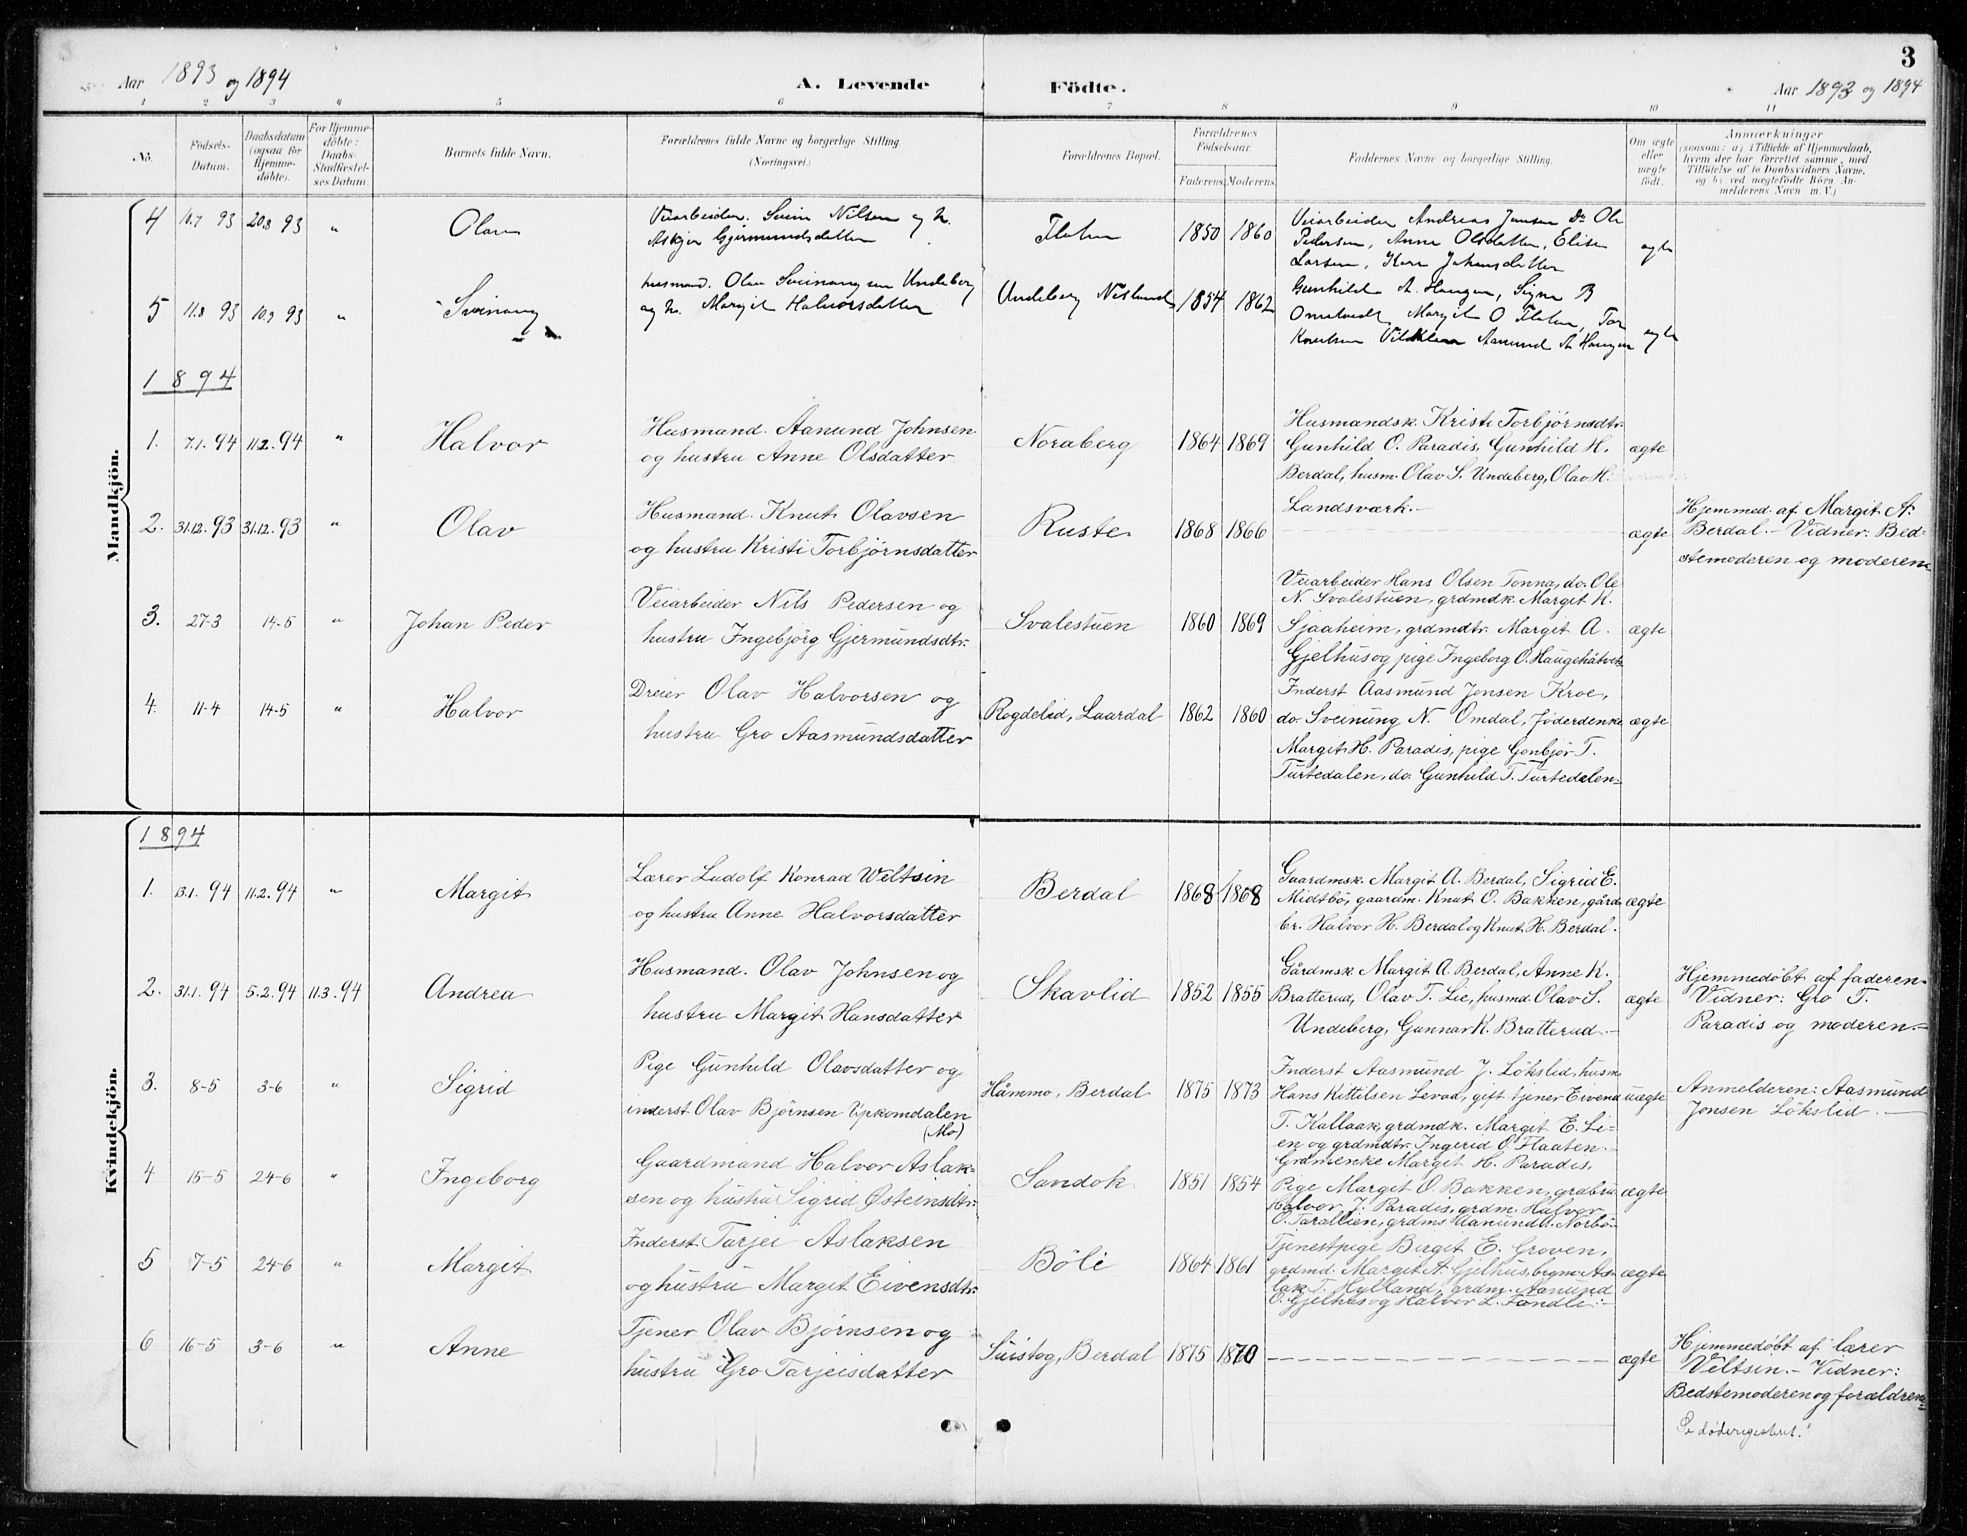 3
Aar 1893 og 1894
A. Levende Födte.
Aar 1893 og 1894
1 2 3 4 5 6 7 8 9 10 11
No.
Födsels-Datum.
Daabsdatum (ogsaa for Hjemme-döbte).
For Hjemme-döbte: Daabs-Stadfæstel-ses Datum.
Barnets fulde Navn.
Forældrenes fulde Navne og borgerlige Stilling (Næringsvei).
Forældrenes Bopæl.
Forældrenes Födselsaar.
Faderens. Moderens.
Faddernes Navne og borgerlige Stilling.
Om ægte eller uægte födt.
Anmærkninger
(saasom: a) i Tilfælde af Hjemmedaab,
hvem der har forrettet samme, med
Tilföielse af to Daabsvidners Navne,
og b) ved uægtefödte Börn An-
melderens Navn m. V.)
Mandkjön.
4 16.7 93 20.8 93 " Olav
Veiarbeider. Svein Nilsen og h.
Askjer Gjermundsdatter
Flaten 1850 1860
Veiarbeider Andreas Jansen Do Ole
Pedersen, Anne Olsdatter, Elise
Larsen, Kari Johansdatter
ægte
5 11.8 93 10.9 93 " Sveinung
husmand. Olav Sveinungsen Undeberg
og h. Margit Halvorsdatter
Undeberg Neslund 1854 1862
Gunhild A. Haugen, Signe B
Omtvedt, Margit O Flaten, Tor
Knutsen Aanund A Haugen
ægte
1894
1. 7.1. 94 11.2. 94 " Halvor
Husmand. Aanund Johnsen
og hustru Anne Olsdatter
Noraberg 1864 1869
Husmandsk. Kristi Torbjørnsdtr.
Gunhild O. Paradis, Gunhild H.
Berdal, husm. Olav S. Undeberg, Olav H.
Landsværk.-
ægte
2. 31.12. 93 31.12. 93 " Olav
Husmand. Knut Olavsen
og hustru Kristi Torbjørnsdatter
Ruste 1868 1866
ægte
Hjemmed. af Margit A.
Berdal.- Vidner: Bed-
stemoderen og moderen
3. 27-3 14-5 " Johan Peder
Veiarbeider Nils Pedersen og
hustru Ingebjörg Gjermundsdtr.
Svalestuen 1860 1869
Veiarbeider Hans Olsen Tonna, do. Ole
N. Svalestuen, grdmdk. Margit K.
Sjaaheim, grdmdtr. Margit A.
Gjelhus og pige Ingeborg O. Haugehåtveit
ægte
4. 11-4 14-5 " Halvor
Dreier Olav Halvorsen og
hustru Gro Aasmundsdatter
Rogdelid, Laardal 1862 1860
Inderst Aasmund Jonsen Kroe,
do. Sveinung N. Omdal, Föderdenke
Margit H. Paradis, pige Gonbjör T.
Turtedalen, do. Gunhild T. Turtedalen-
ægte
Kvindekjön.
1894
1. 13.1. 94 11.2. 94 " Margit
Lærer Ludolf Konrad Weltsin
og hustru Anne Halvorsdatter
Berdal 1868 1868
Gaardmsk. Margit A. Berdal, Sigrid E.
Midtbö, gaardm. Knut O. Bakken, gård-
br. Halvor H. Berdal og Knut H. Berdal.
ægte
2. 31.1. 94 5.2. 94 11.3. 94 Andrea
Husmand. Olav Johnsen og
hustru Margit Hansdatter
Skavlid 1852 1855
Gårdmsk. Margit A. Berdal, Anne K.
Bratterud, Olav T. Lie, husmd. Olav S.
Undeberg, Gunnar K. Bratterud.-
ægte
Hjemmedöbt af faderen-
Vidner: Gro T.
Paradis og moderen.-
3. 8-5 3-6 " Sigrid
Pige Gunhild Olavsdatter og
inderst Olav Björnsen Upkomdalen
(Mo)
Håmmo, Berdal 1875 1873
Inderst Aasmund J. Lökslid, husm.
Hans Kittilsen Levad, gift tjener Eivend
T. Kallaak, grdmdk. Margit E. Li-
en og grdmdtr. Ingerid O. Flaaten.-
uægte
Anmelderen: Aasmund
Jonsen Lökslid.
4 15-5 24-6 " Ingeborg
Gaardmand Halvor Aslak-
sen og hustru Sigrid Østeinsdtr.
Sandok 1851 1854
Grdmenke Margit H. Paradis,
Pige Margit O. Bakken, grdbru
Halvor J. Paradis, grdm. Halvor
O. Tarallien, grdms Aanund Norbö-
ægte
5 7-5 24-6 " Margit
Inderst Tarjei Aslaksen
og hustru Margit Eivensdtr.
Böli 1864 1861
Tjenestpige Birgit E. Groven,
grdmd. Margit A. Gjelhus, bygm. As-
lak T. Hylland, grdm. Aanund
O. Gjelhus og Halvor L. Tandli:-
ægte
6 16-5 3-6 " Anne
Tjener Olav Björnsen og
hustru Gro Tarjeisdatter
Suistog, Berdal 1875 1870
ægte
Hjemmedöbt af lærer
Veltsin.- Vidner:
Bedstemoderen og forældrene